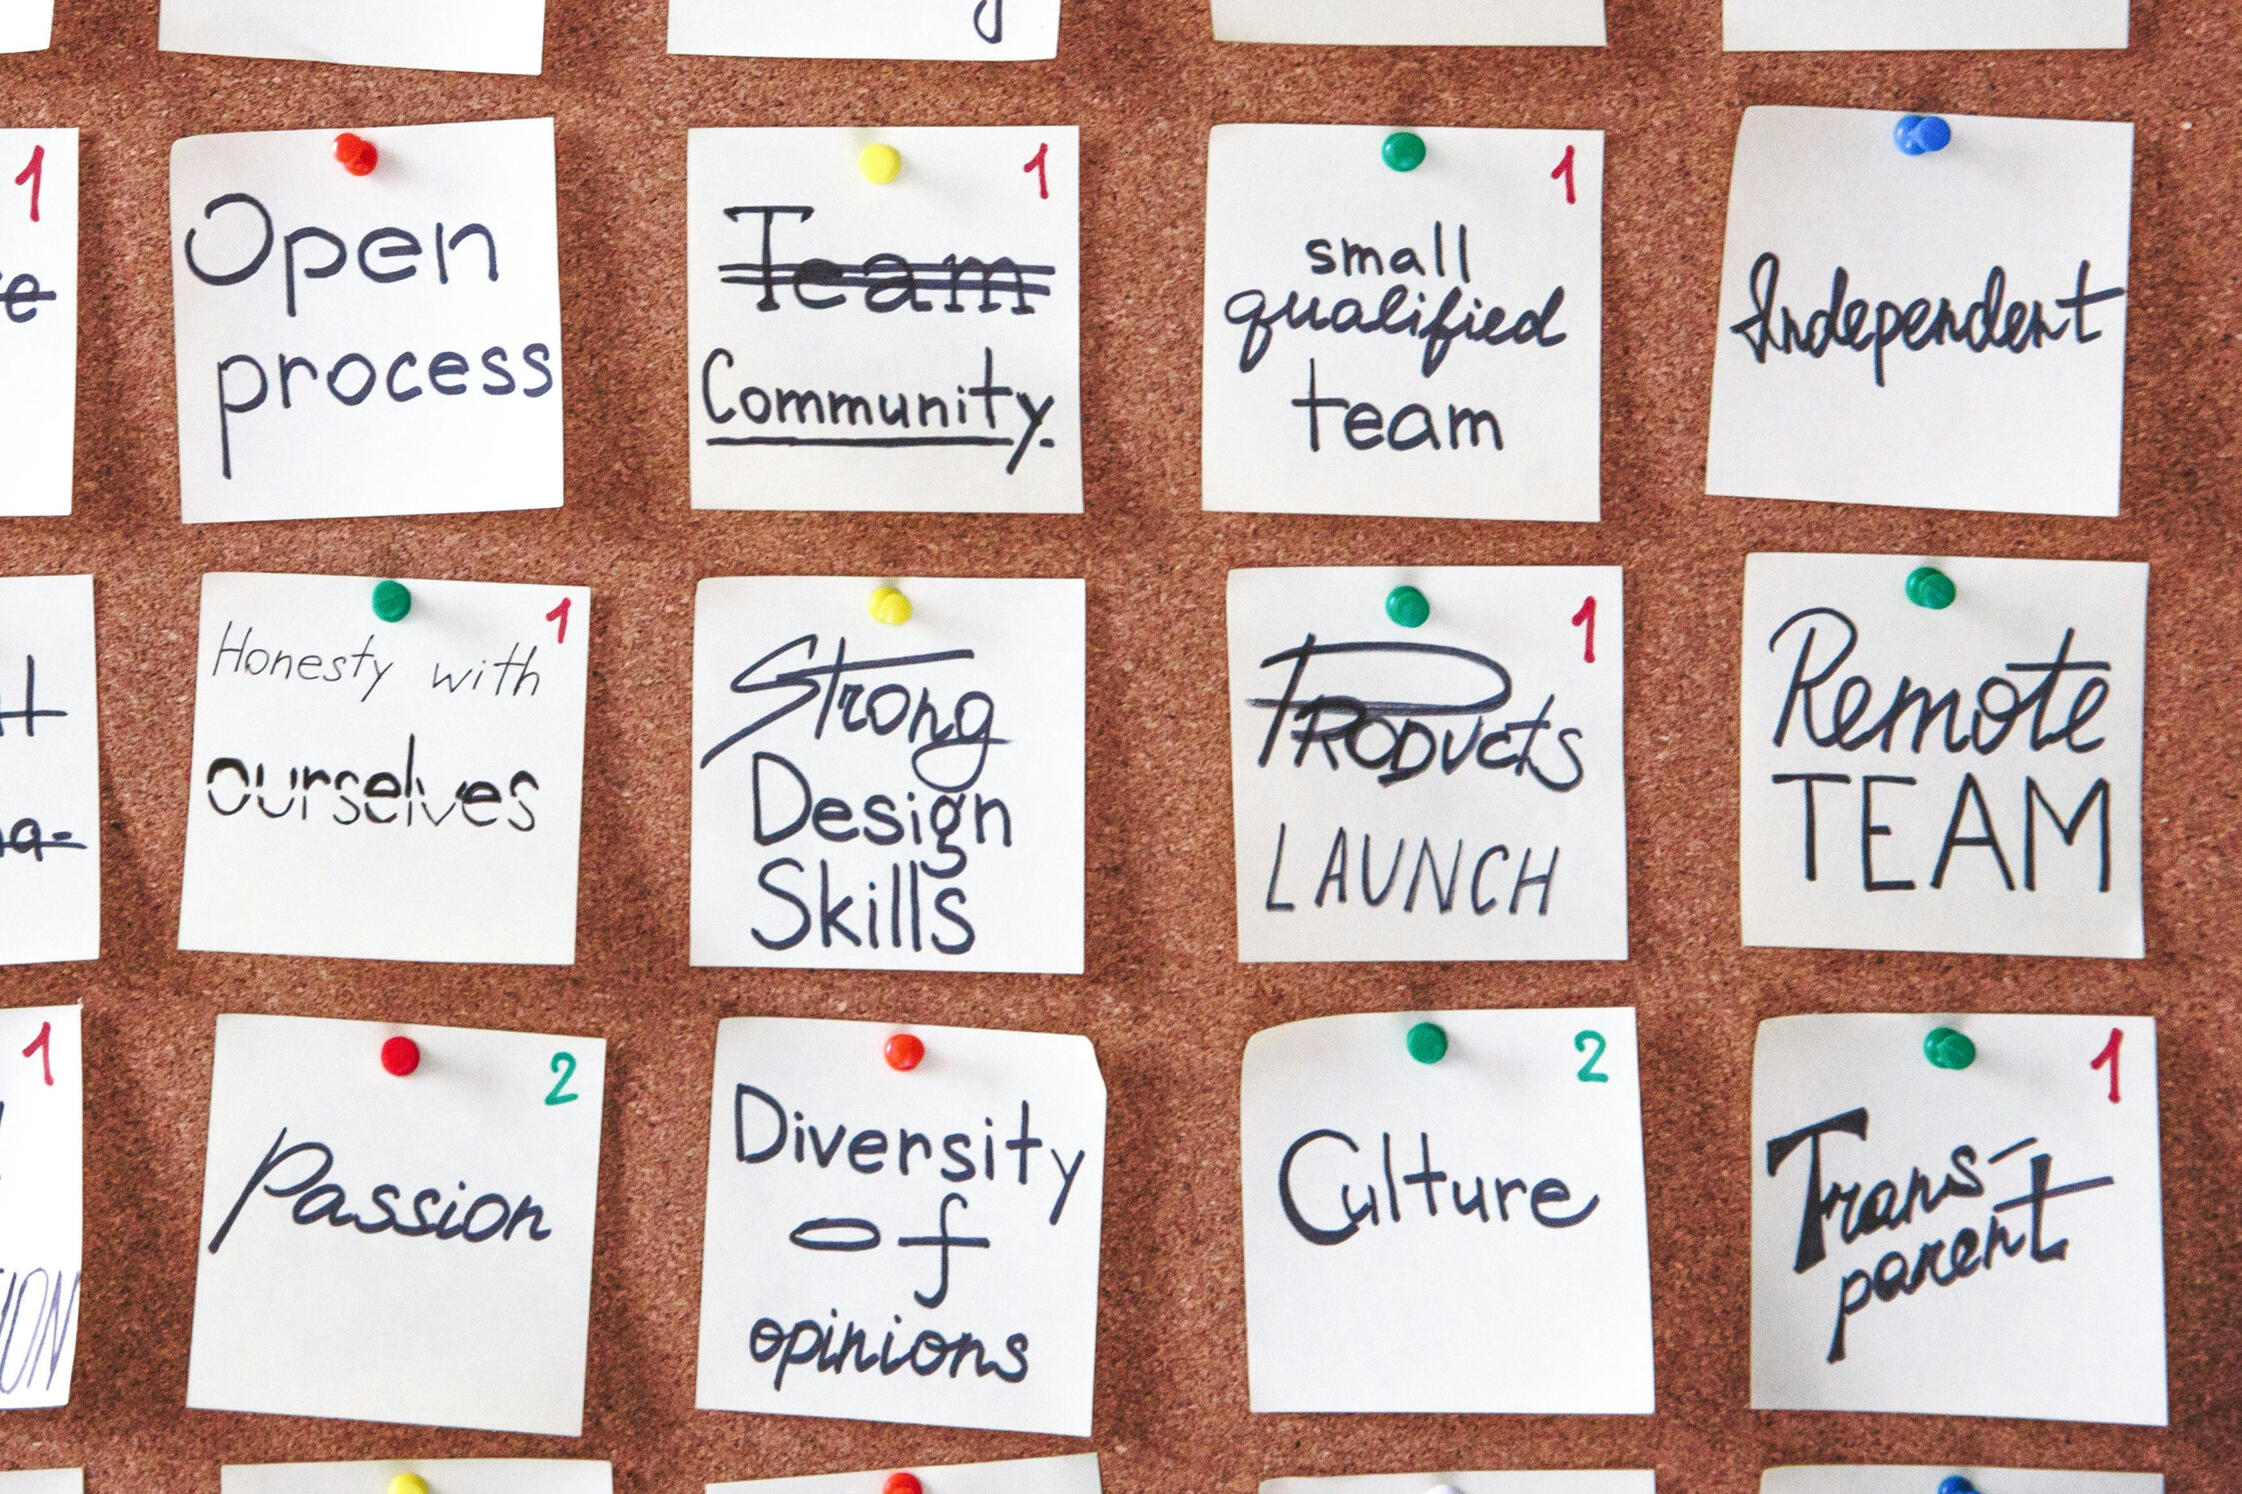 1
Open
process
1
Team
Community.
1
small
qualified
team
Independent
1
Honesty with
ourselves
Strong
Design
Skills
1
PRODUcts
LAUNCH
Remote
TEAM
1
2
Passion
Diversity
of
opinions
2
Culture
1
Trans-
parent